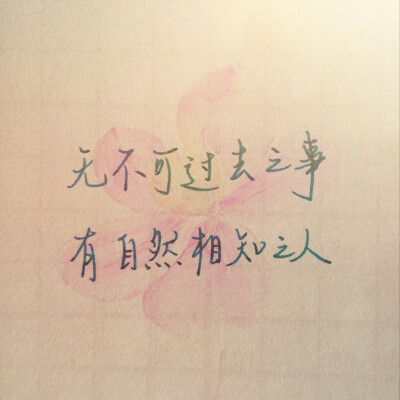 无不可过去之事
有自然相知之人